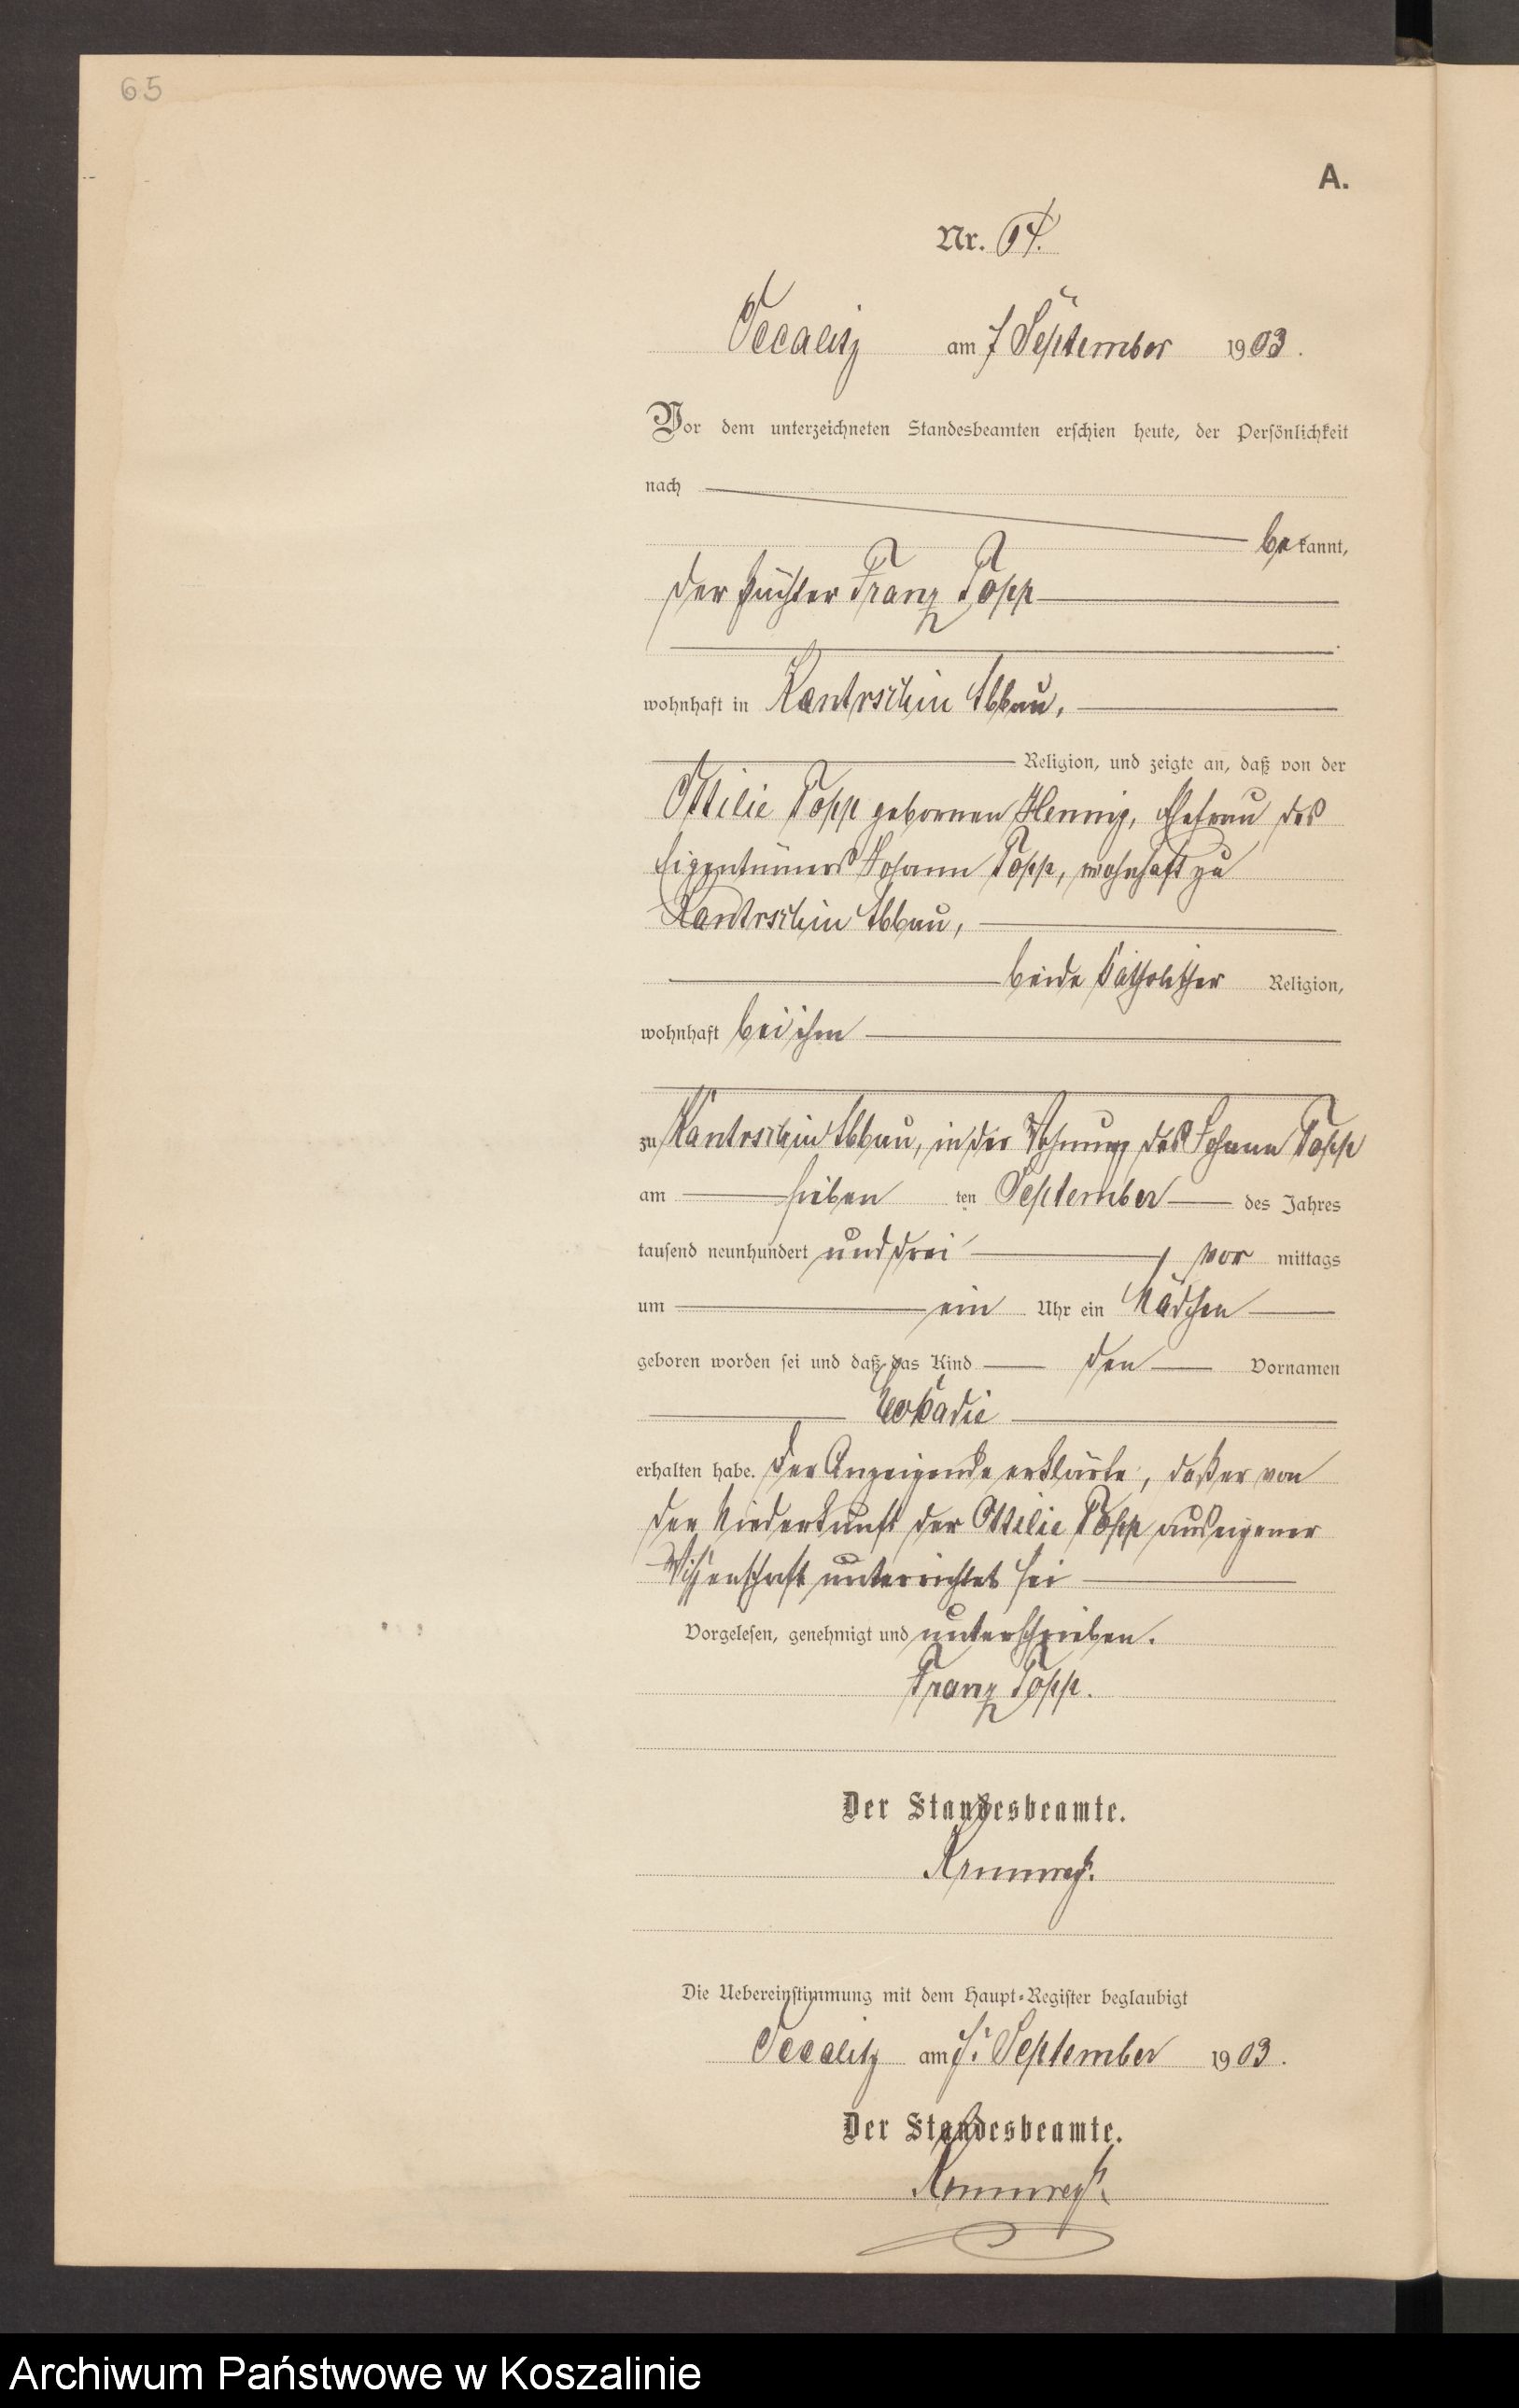 65
A.
Nr. 64.
Oscalitz am 7 September 1903.
Vor dem unterzeichneten Standesbeamten erschien heute, der Persönlichkeit
nach
bekannt,
der Franz Topp
wohnhaft in Kantrschin Abbau,
Religion, und zeigte an, daß von der
Ottilie Topp gebornen Hennig, Ehefrau des
Eigentümers Johann Topp, wohnhaft zu
Kantrschin Abbau,
beide katholischer Religion,
wohnhaft bei ihm
zu Kantrschin Abbau, in der Wohnung des Johann Topp
am sieben ten September des Jahres
tausend neunhundert und drei, vor mittags
um ein Uhr ein Mädchen
geboren worden sei und daß das Kind den Vornamen
Leokadie
erhalten habe. Der Anzeigende erklärte, daß er von
der Niederkunft der Ottilie Topp aus eigener
Wissenschaft unterrichtet sei
Vorgelesen, genehmigt und unterschrieben.
Franz Topp.
Der Standesbeamte.
Die Uebereinstimmung mit dem Haupt-Register beglaubigt
Oscalitz am 7. September 1903.
Der Standesbeamte.
Archiwum Państwowe w Koszalinie